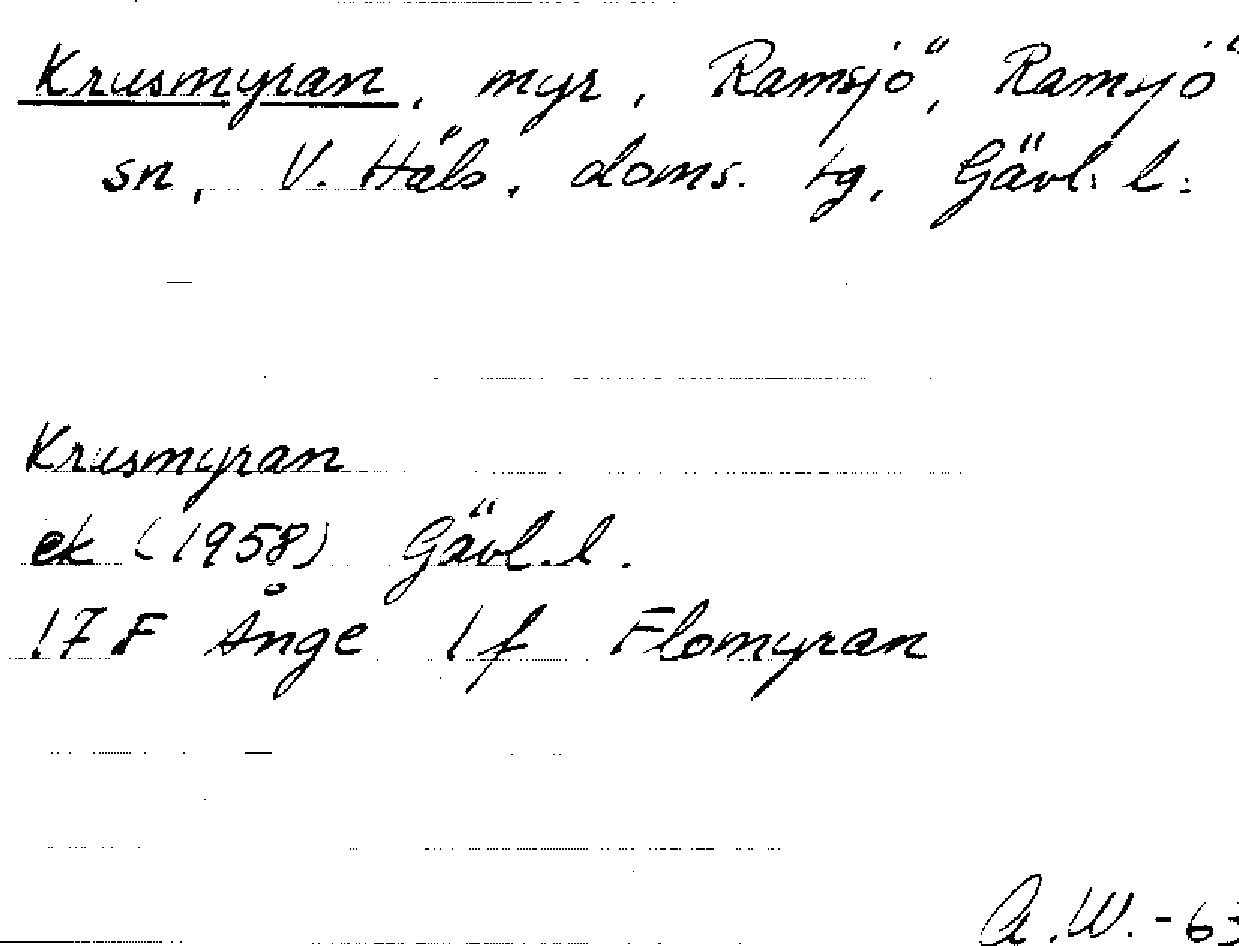 Krusmyran, myr, Ramsjö, Ramsjö
sn, V. Häls. doms. tg, Gävl. l.
Krusmyran
ek (1958) Gävl. l.
17 F Ånge 1 f Flomyran
A.W.-63